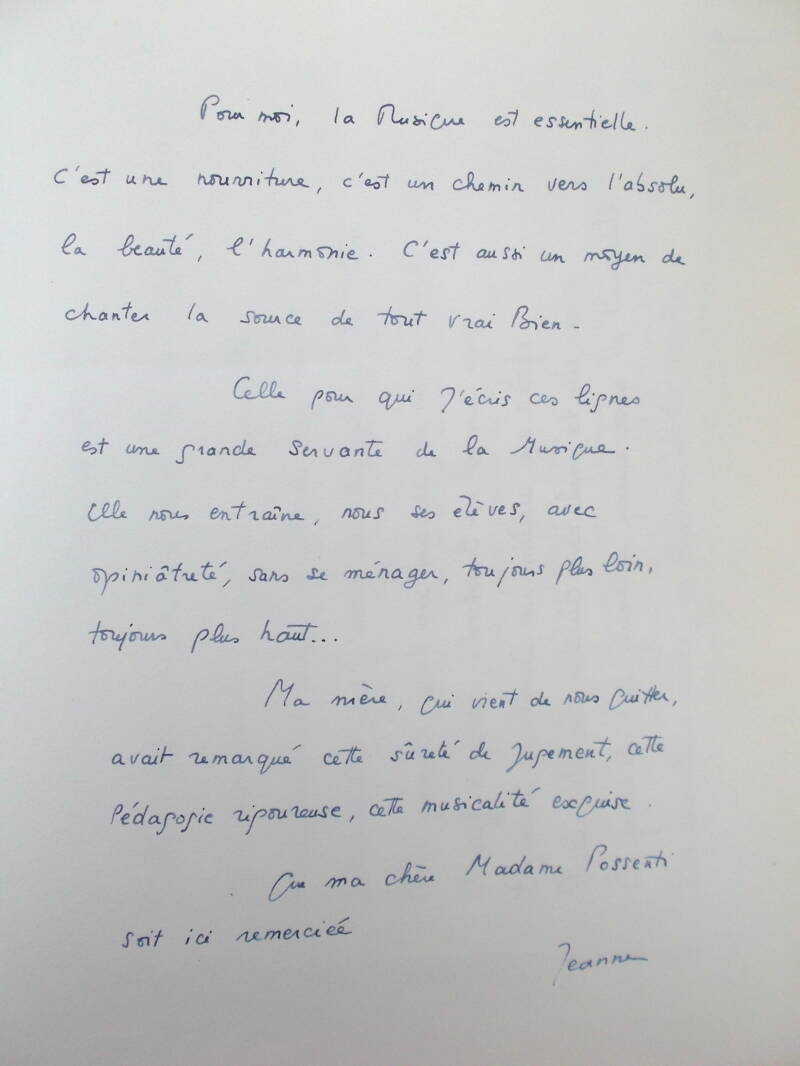 Pour moi, la Musique est essentielle.
C'est une nourriture, c'est un chemin vers l'absolu,
la beauté, l'harmonie. C'est aussi un moyen de
chanter la source de tout vrai Bien -
Celle pour qui J'écris ces lignes
est une grande servante de la Musique.
Elle nous entraîne, nous ses élèves, avec
opiniâtreté, sans se ménager, toujours plus loin,
toujours plus haut...
Ma mère, qui vient de nous quitter,
avait remarqué cette sûreté de Jugement, cette
Pédagogie rigoureuse, cette musicalité exquise.
Que ma chère Madame Possenti
soit ici remerciéé
Jeanne